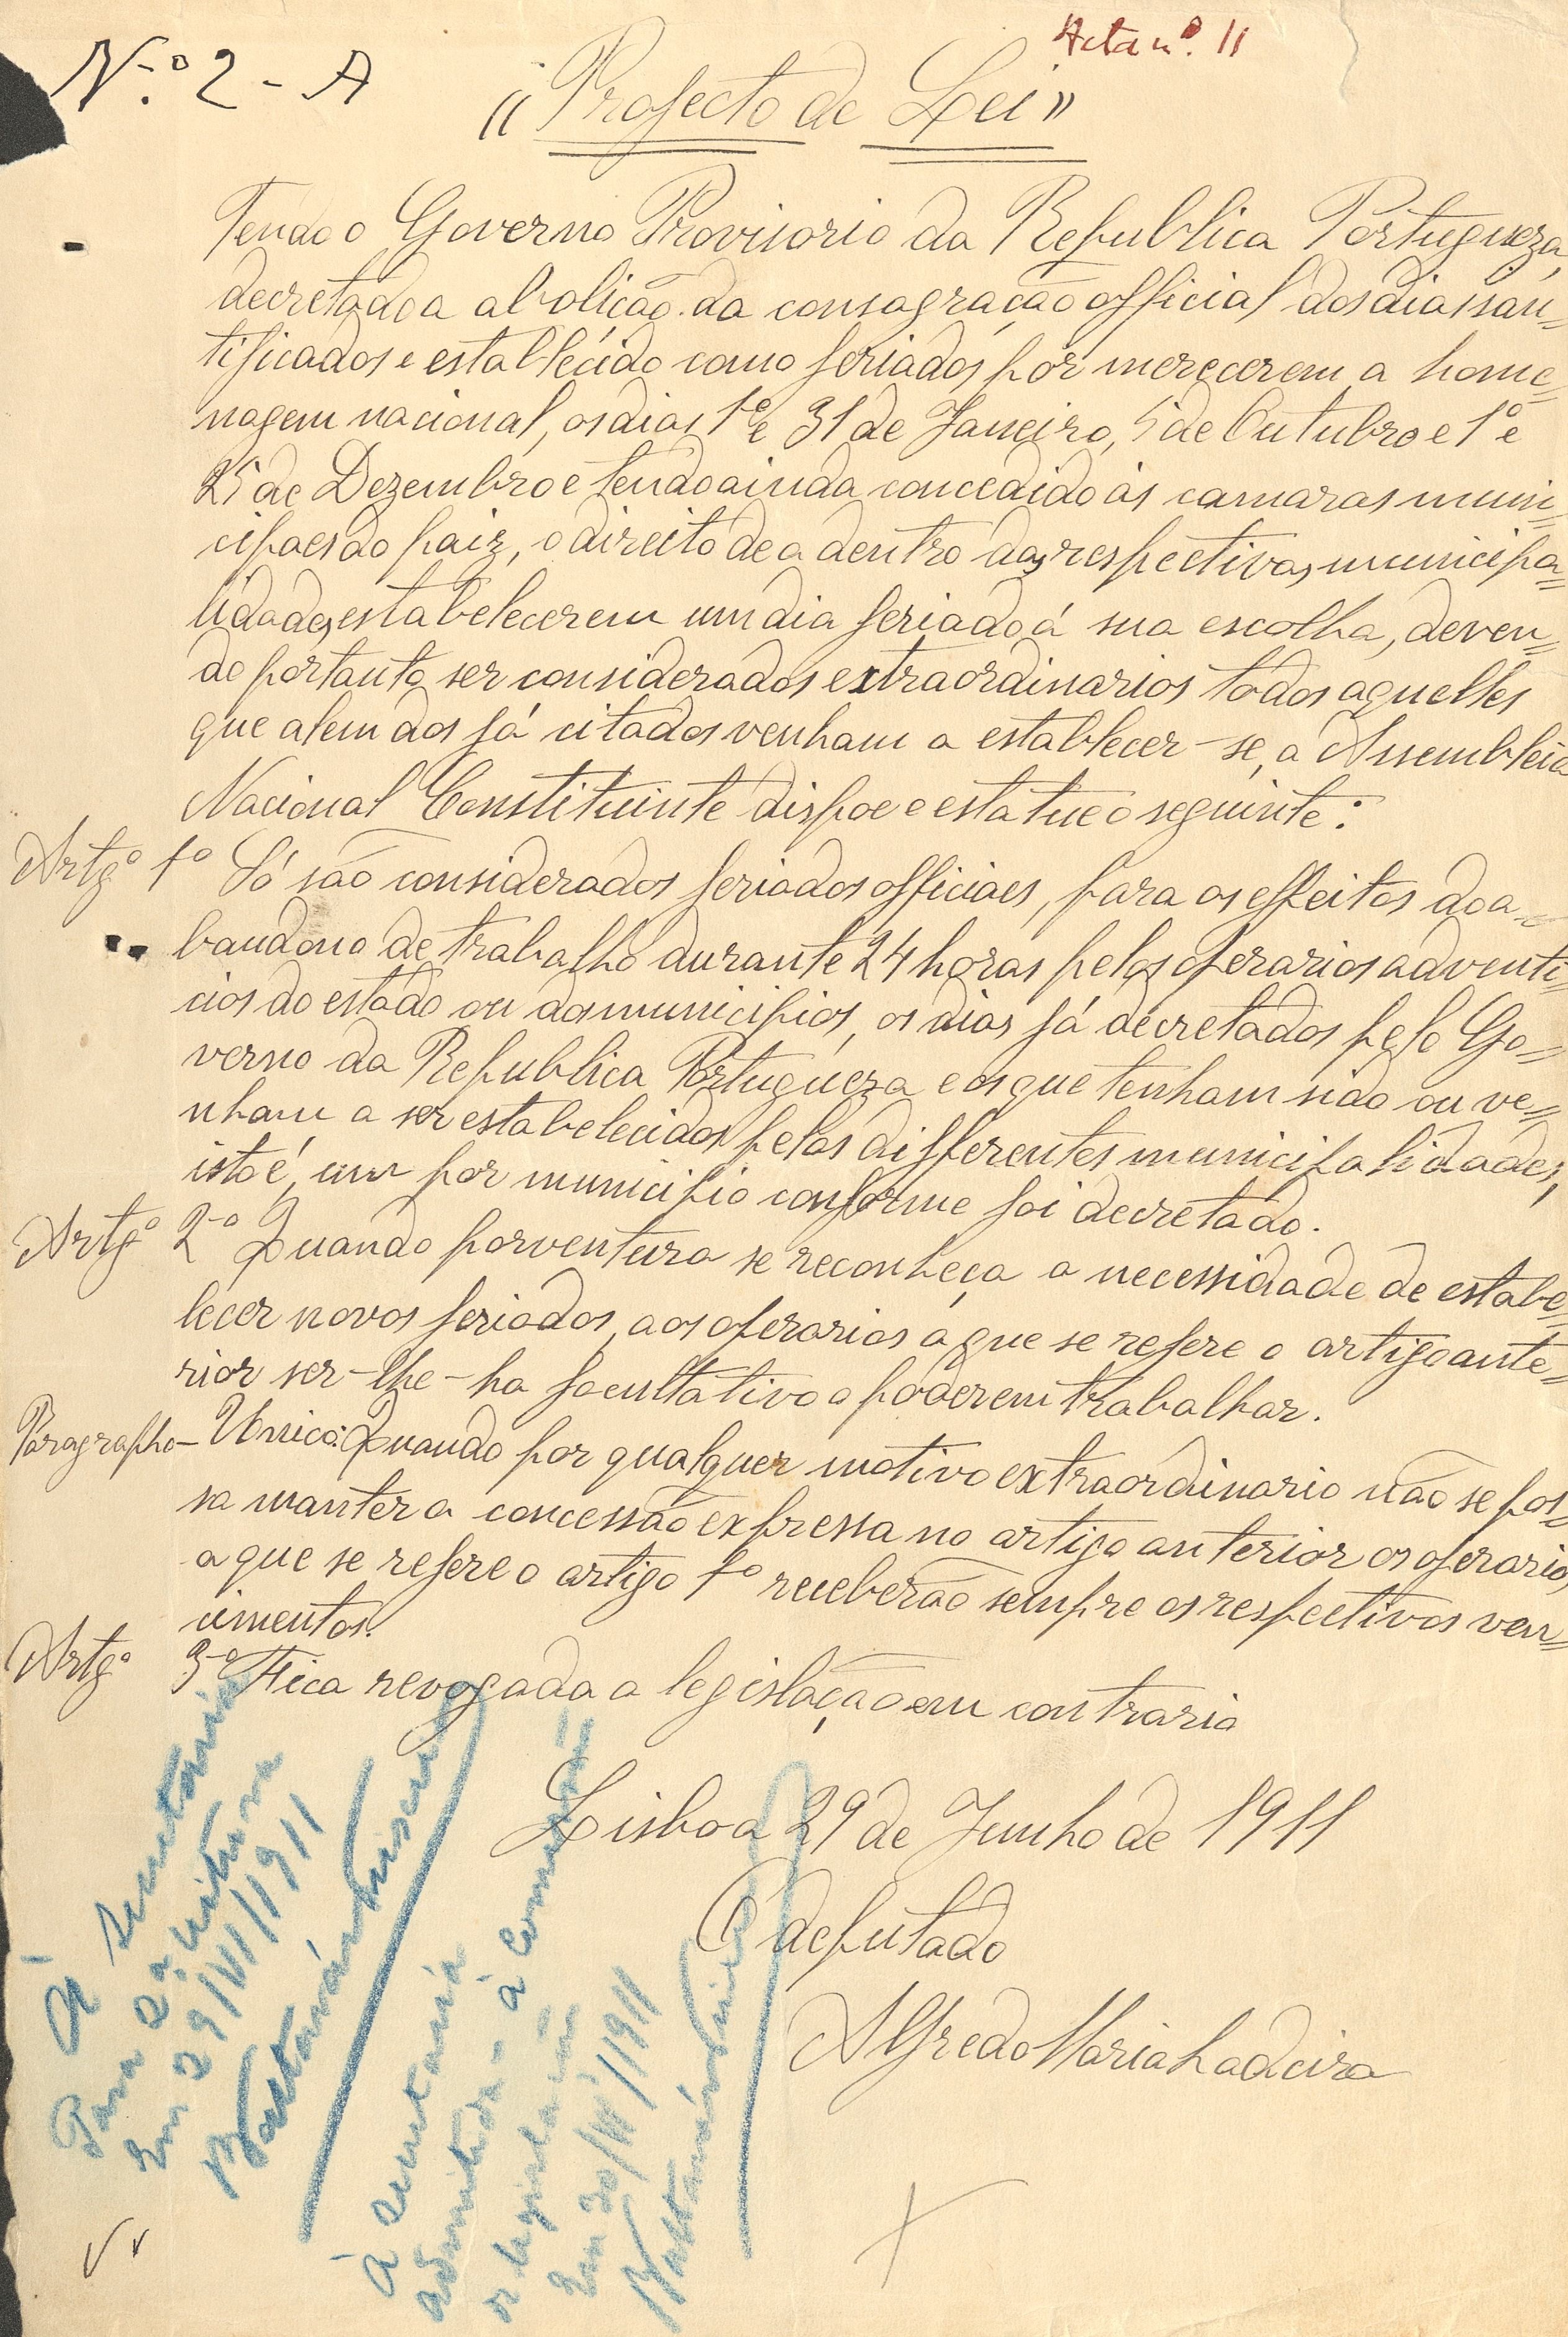 N.º 2 - A
Acta nº. 11
"Projecto de Lei"
Tendo o Governo Provisorio da Republica Portugueza,
decretado a abolição da consagração official dos dias san=
tificados e establecido como feriados por merecerem a home=
nagem nacional, os dias 1º e 31 de Janeiro, 5 de Outubro e 1º e
25 de Dezembro e tendo ainda concedido ás camaras muni=
cipaes do paiz, o direito de a dentro das respectivas municipa=
lidades, estabelecerem um dia feriado á sua escolha, deven=
do portanto ser considerados extraordinarios todos aquelles
que alem dos já citados venham a establecer-se, a Assembleia
Nacional Constituinte dispoe e estatue o seguinte:
Artgº 1º Só são considerados feriados officiaes, para os effeitos do a=
bandono de trabalho durante 24 horas pelos operarios adventi=
cios do estado ou dos municipios, os dias já decretados pelo Go=
verno da Republica Portugueza e os que tenham sido ou ve=
nham a ser estabelecidos pelas differentes municipalidades,
isto é, um por municipio conforme foi decretado.
Artgº 2º Quando porventura se reconheça a necessidade de estabe=
lecer novos feriados, aos operarios a que se refere o artigo ante=
rior ser-lhe-ha facultativo o poderem trabalhar.
Paragrapho- Unico: Quando por qualquer motivo extraordinario não se pos=
sa manter a concessão expressa no artigo anterior os operarios
a que se refere o artigo 1º receberão sempre os respectivos ven=
cimentos.
Artgº 3º Fica revogada a legislação em contrario
Lisboa 29 de Junho de 1911
O deputado
Alfredo Maria Ladeira
Á secretaria
Para 2ª leitura
Em 29/VI/1911
Á secretaria
admitida - á comissão
de legislação
Em 30/VI/1911